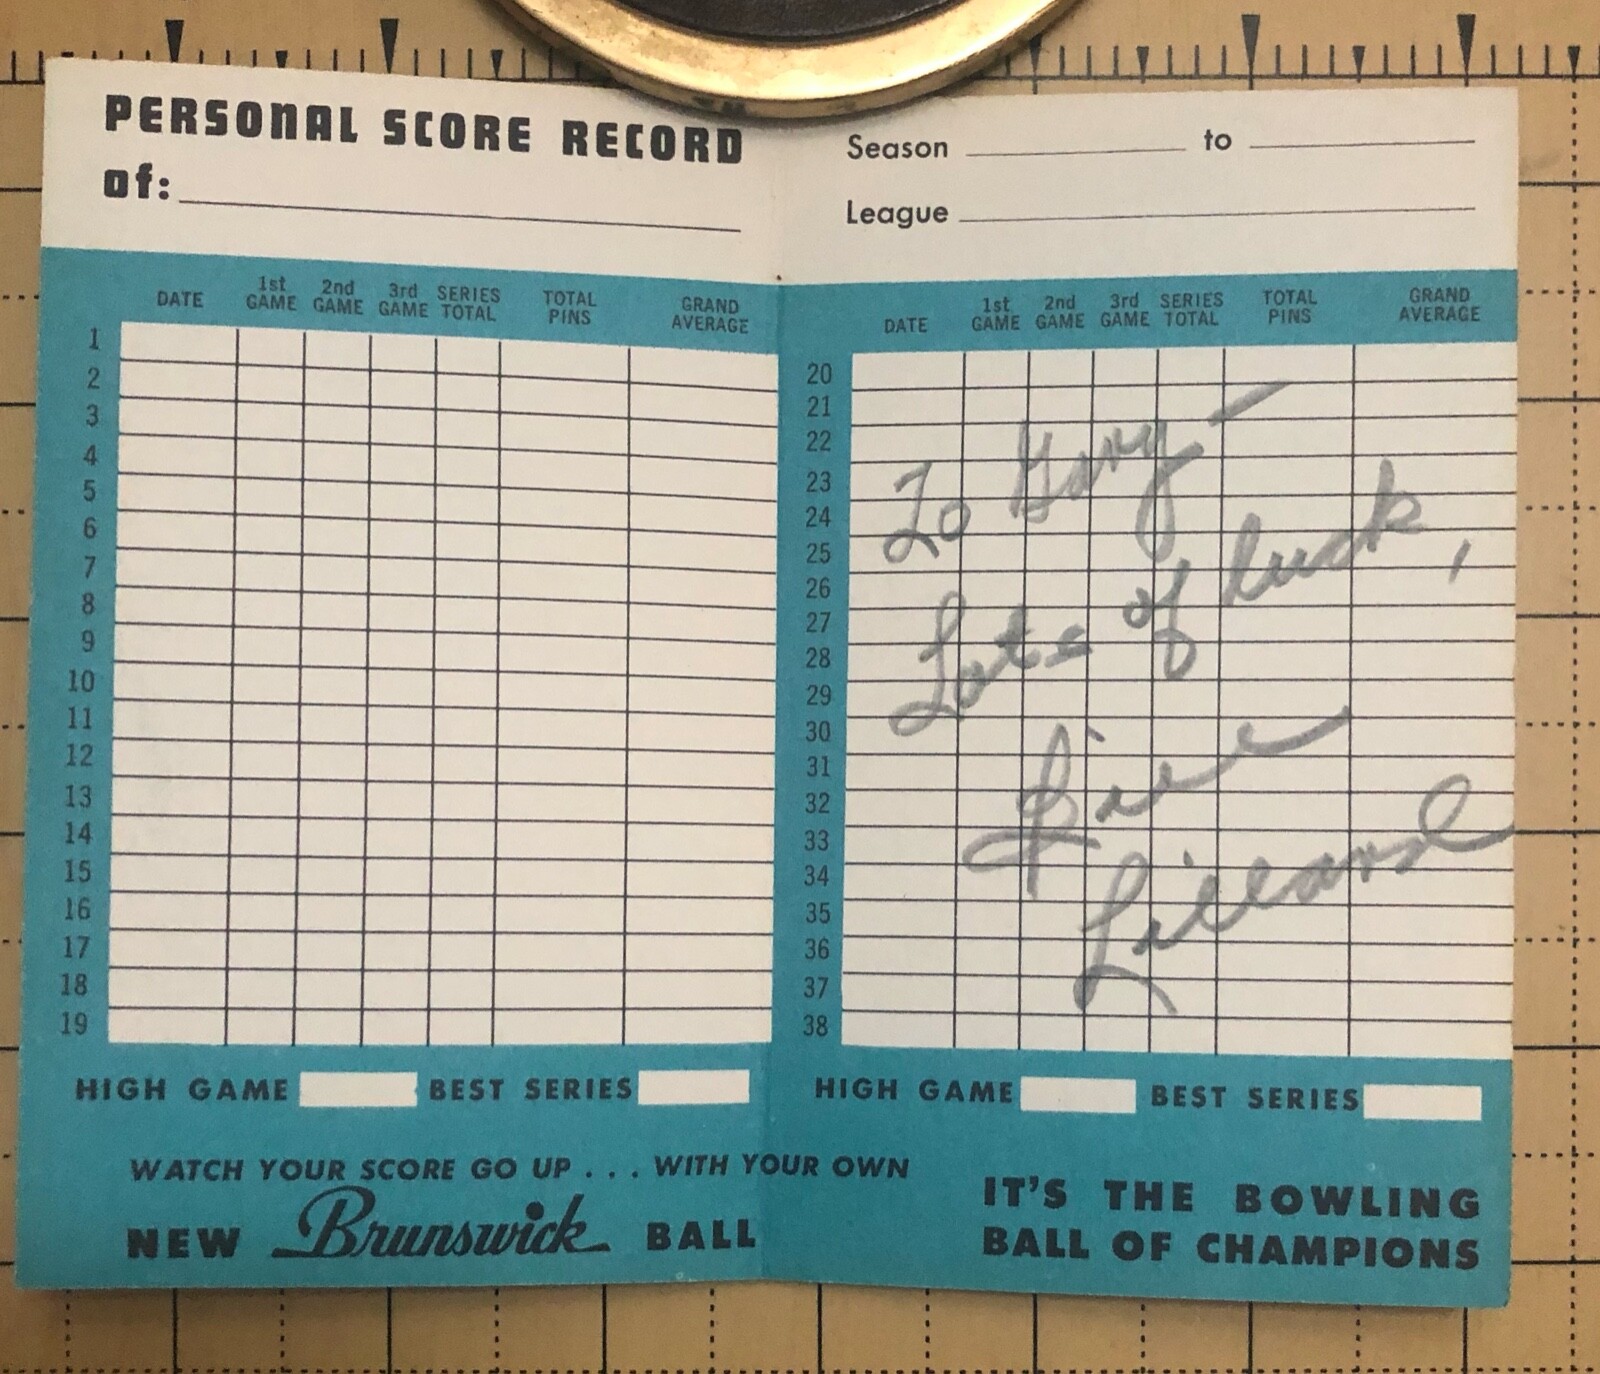 PERSONAL SCORE RECORD
of:
DATE 1st GAME 2nd GAME 3rd GAME SERIES TOTAL TOTAL PINS GRAND AVERAGE
1
2
3
4
5
6
7
8
9
10
11
12
13
14
15
16
17
18
19
HIGH GAME BEST SERIES
Season to
League
DATE 1st GAME 2nd GAME 3rd GAME SERIES TOTAL TOTAL PINS GRAND AVERAGE
20
21
22
23
24
25
26
27
28
29
30
31
32
33
34
35
36
37
38
To Gary -
Lots of luck,
Bill
Lillard
HIGH GAME BEST SERIES
WATCH YOUR SCORE GO UP . . . WITH YOUR OWN
NEW Brunswick BALL
IT'S THE BOWLING
BALL OF CHAMPIONS